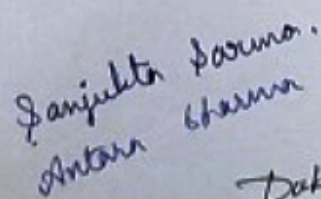 Sanjukta Sarma.
Antara Sharma